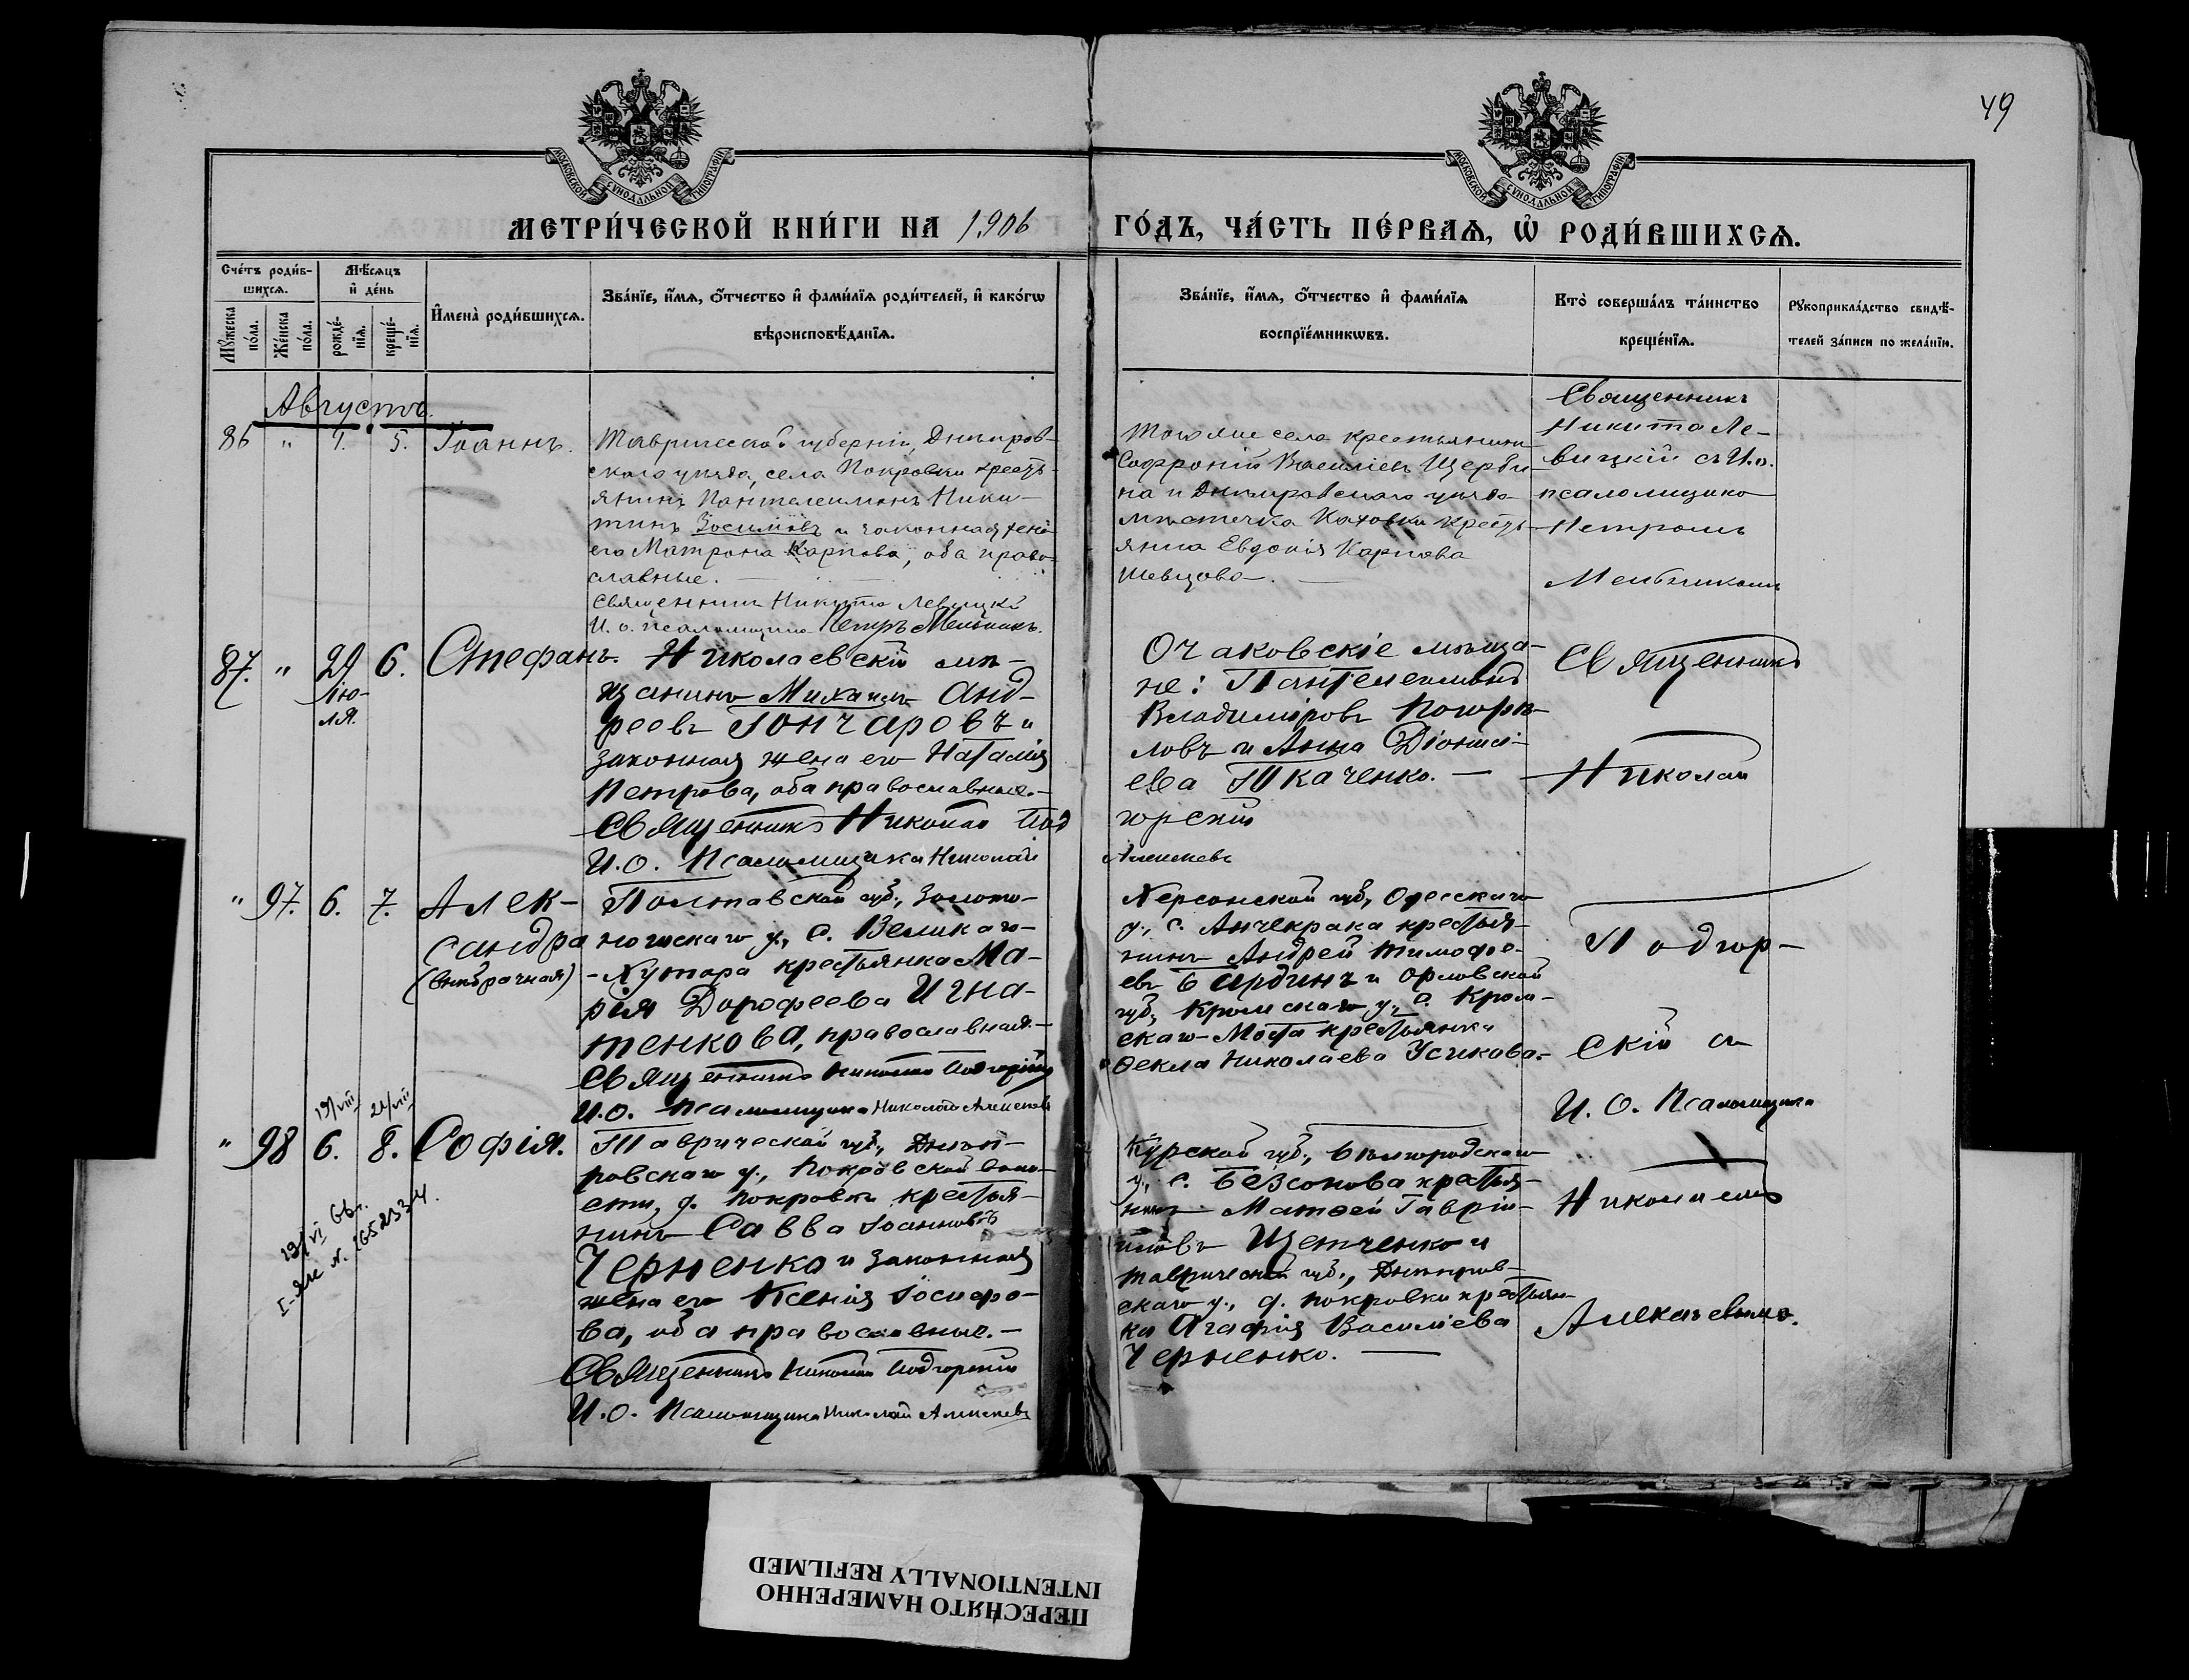 49
МОСКОВСКОЙ СУНОДАЛЬНОЙ ТИПОГРАФІИ
МОСКОВСКОЙ СУНОДАЛЬНОЙ ТИПОГРАФІИ
МЕТРИ́ЧЕСКОЙ КНИ́ГИ НА 1906
ГО́ДЪ, ЧА́СТЬ ПЕ́РВАѦ, Ѡ҆ РОДИ́ВШИХСѦ.
Сче́тъ роди́в-
шихсѧ.
Мѣ́сѧцъ
и҆ де́нь
Мꙋ́жеска по́ла.
Же́нска по́ла.
рожде́-
нїѧ.
креще́-
нїѧ.
И҆мена̀ роди́вшихсѧ.
Зва́нїе, и҆́мѧ, ѻ҆́тчество и҆ фами́лїѧ роди́телей, и҆ како́гѡ
вѣроисповѣ́данїѧ.
Зва́нїе, и҆́мѧ, ѻ҆́тчество и҆ фами́лїѧ
воспрїе́мникѡвъ.
Кто̀ соверша́лъ та́инство
креще́нїѧ.
Рꙋкоприкла́дство свидѣ́-
телей за́писи по жела́нїю.
Августъ.
86 " 1. 5. Іоаннъ.
Таврической губерніи, Днѣпров-
скаго уѣзда, села Покровки кресть-
янинъ Пантелеимонъ Ники-
тинъ Зосимовъ и законная жена
его Матрона Карпова, оба право-
славные.
Священникъ Никита Левицкій
И. о. псаломщика Петръ Мельникъ.
Того же села крестьянинъ
Софроній Василіевъ Щерби-
на и Днѣпровскаго уѣзда
мѣстечка Каховки кресть-
янка Евдокія Карпова
Шевцова.
Священникъ
Никита Ле-
вицкій съ И.о.
псаломщика
Петромъ
Мельникомъ
87. " 29 6. Стефанъ.
Ію-
ля.
Николаевскій мѣ-
щанинъ Михаилъ Анд-
реевъ Гончаровъ и
законная жена его Наталія
Петрова, оба православные.
Священникъ Николай Под
И.о. Псаломщика Николай
Очаковскіе мѣща-
не: Пантелеимонъ
Владиміровъ Погорѣ-
ловъ и Анна Діонисі-
ева Ткаченко.
горскій
Алексѣевъ
Священникъ
Николай
" 97. 6. 7. Алек-
сандра
(внѣбрачная)
Полтавской губ., Золото-
ношскаго у., с. Великаго-
-Хутора крестьянка Ма-
рія Дорофеева Игна-
тенкова, православная.
Священникъ Николай Подгорскій
И.о. Псаломщика Николай Алексѣевъ
Херсонской губ., Одесскаго
у., с. Анчекрака крестья-
нинъ Андрей Тимофе-
евъ Бардинъ и Орловской
губ., Кромскаго у., с. Кром-
скаго-Моста крестьянка
Ѳекла Николаева Усикова.
Подгор-
скій съ
И.О. Псаломщика
19/VIII 21/VIII
" 98 6. 8. Софія.
19/VI 66г.
I-ЯЮ №. 1652334.
Таврической губ., Днѣп-
ровскаго у., Покровской воло-
сти, д. Покровки крестья-
нинъ Савва Іоанновъ
Черненко и законная
жена его Ксенія Іосифо-
ва, оба православные.
Священникъ Николай Подгорскій
И.О. Псаломщика Николай Алексѣевъ
Курской губ., Бѣлгородскаго
у., с. Безсонова крестья-
нинъ Матѳей Гаврі-
иловъ Щетченко и
Таврической губ., Днѣпров-
скаго у., д. Покровки крестьян-
ка Агафія Василіева
Черненко.
Николаемъ
Алексѣевымъ.
ПЕРЕСНЯТО НАМЕРЕННО
INTENTIONALLY REFILMED